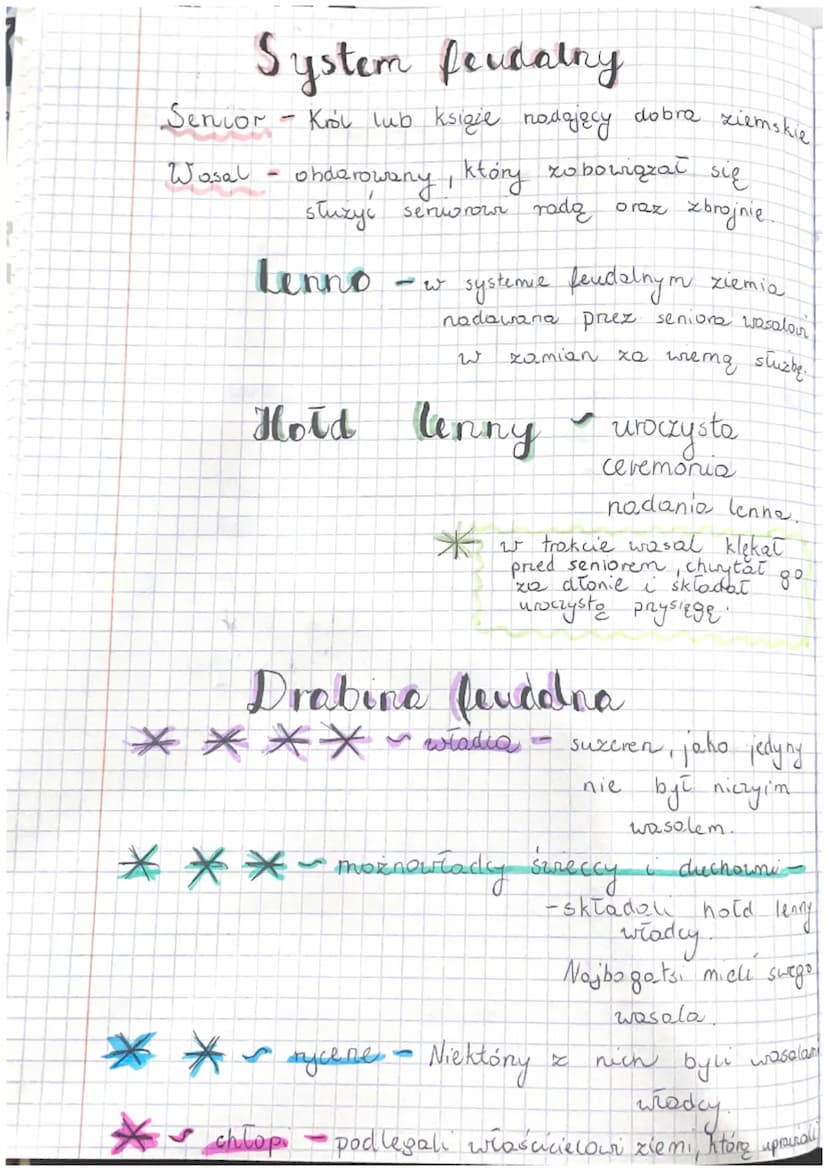 System feudalny
Senior - Król lub książe nadający dobra ziemskie
Wasal - obdarowany, który zobowiązał się
służyć seniorowi radą oraz zbrojnie.
Lenno - w systemie feudalnym ziemia
nadawana przez seniora wasalowi
w zamian za wierną służbę.
Hołd lenny - uroczysta
ceremonia
nadania lenna.
w trakcie wasal klękał
przed seniorem, chwytał go
za dłonie i składał
uroczystą przysięgę.
Drabina feudalna
władca - suzeren, jako jedyny
nie był niczyim
wasalem.
możnowładcy świeccy i duchowni -
- składali hołd lenny
władcy.
Najbogatsi mieli swego
wasala.
rycerze - Niektórzy z nich byli wasalami
władcy.
chłopi - podlegali właścicielowi ziemi, którą uprawiali